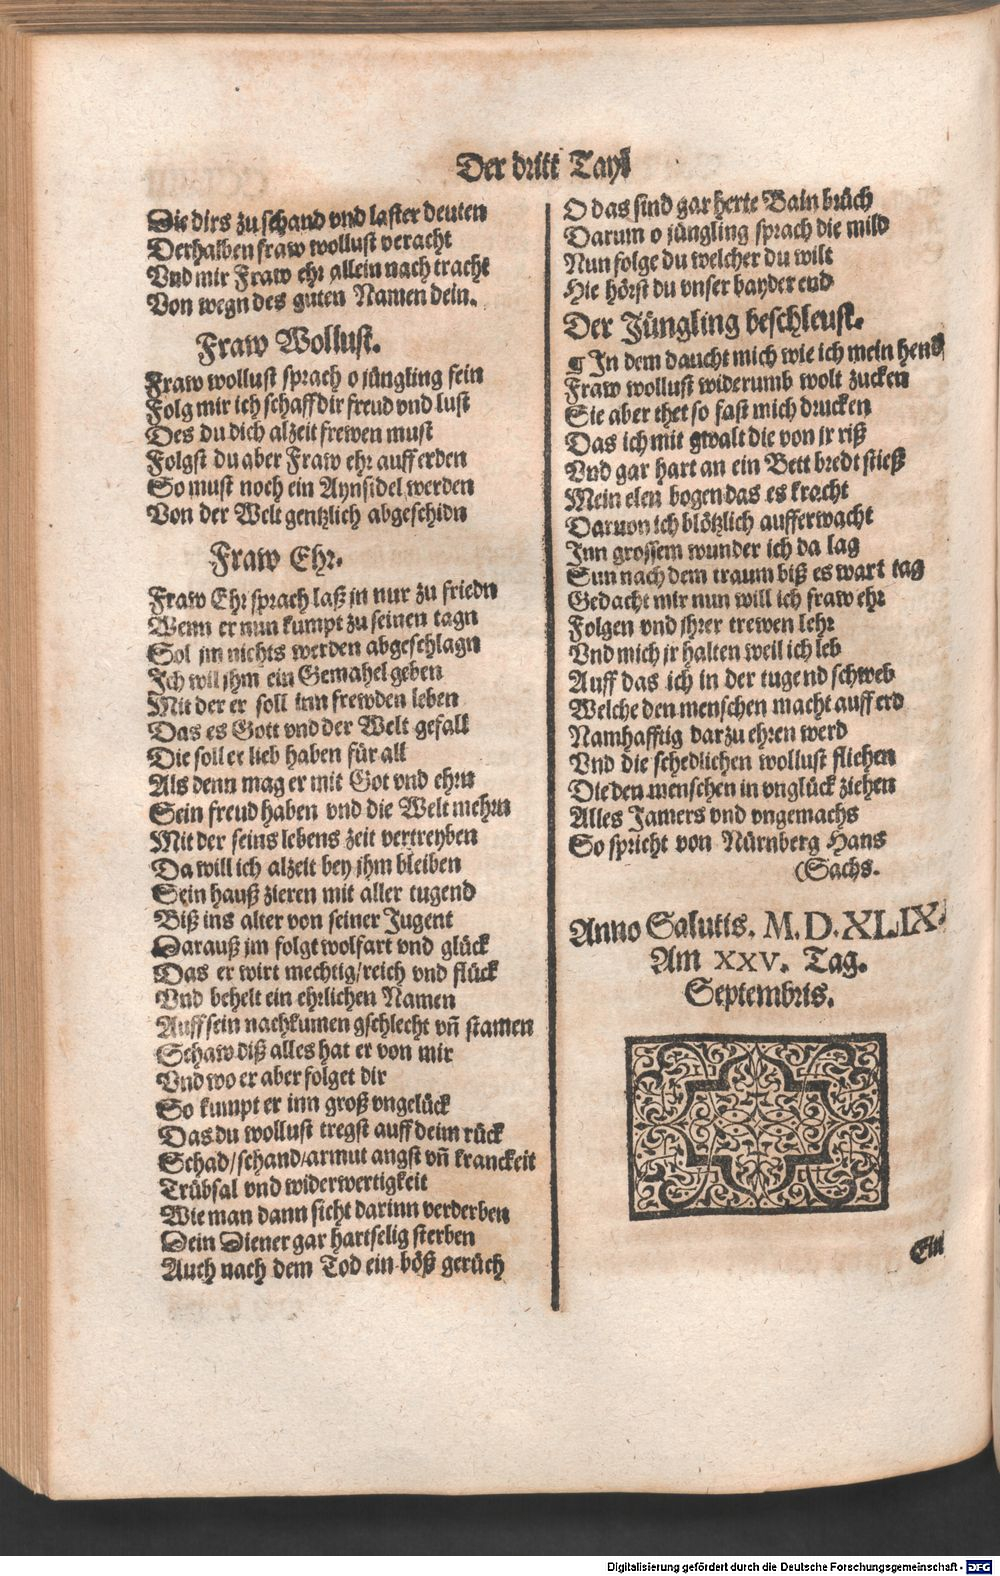 Der dritt Tayl
Die dirs zu schand vnd laster deuten
Derhalben fraw wollust veracht
Vnd mir Fraw ehr allein nach tracht
Von wegn des guten Namen dein.
Fraw Wollust.
Fraw wollust sprach o jüngling fein
Folg mir ich schaff dir freud vnd lust
Des du dich alzeit frewen must
Folgst du aber Fraw ehr auff erden
So must noch ein Aynsidel werden
Von der Welt gentzlich abgeschidn
Fraw Ehr.
Fraw Ehr sprach laß jn nur zu friedn
Wenn er nun kumpt zu seinen tagn
Sol jm nichts werden abgeschlagn
Ich wil jhm ein Gemahel geben
Mit der er soll inn frewden leben
Das es Gott vnd der Welt gefall
Die soll er lieb haben für all
Als denn mag er mit Got vnd ehrn
Sein freud haben vnd die Welt mehrn
Mit der seins lebens zeit vertreyben
Da will ich alzeit bey jhm bleiben
Sein hauß zieren mit aller tugend
Biß ins alter von seiner Jugent
Darauß jm folgt wolfart vnd glück
Das er wirt mechtig/reich vnd flück
Vnd behelt ein ehrlichen Namen
Auff sein nachkumen gschlecht vñ stamen
Schaw diß alles hat er von mir
Vnd wo er aber folget dir
So kumpt er inn groß vngelück
Das du wollust tregst auff deim rück
Schad/schand/armut angst vñ kranckeit
Trübsal vnd widerwertigkeit
Wie man dann sicht darinn verderben
Dein Diener gar hartselig sterben
Auch nach dem Tod ein böß gerüch
O das sind gar herte Bain brüch
Darum o jüngling sprach die mild
Nun folge du welcher du wilt
Hie hörst du vnser bayder end
Der Jüngling beschleust.
¶ In dem daucht mich wie ich mein hend
Fraw wollust widerumb wolt zucken
Sie aber thet so fast mich drucken
Das ich mit gwalt die von jr riß
Vnd gar hart an ein Bett bredt stieß
Mein elen bogen das es kracht
Daruon ich blötzlich aufferwacht
Inn grossem wunder ich da lag
Sun nach dem traum biß es wart tag
Gedacht mir nun will ich fraw ehr
Folgen vnd jhrer trewen lehr
Vnd mich jr halten weil ich leb
Auff das ich in der tugend schweb
Welche den menschen macht auff erd
Namhafftig darzu ehren werd
Vnd die schedlichen wollust fliehen
Die den menschen in vnglück ziehen
Alles Jamers vnd vngemachs
So spricht von Nürnberg Hans
(Sachs.
Anno Salutis. M.D.XLIX.
Am XXV. Tag.
Septembris.
Ein
Digitalisierung gefördert durch die Deutsche Forschungsgemeinschaft - DFG